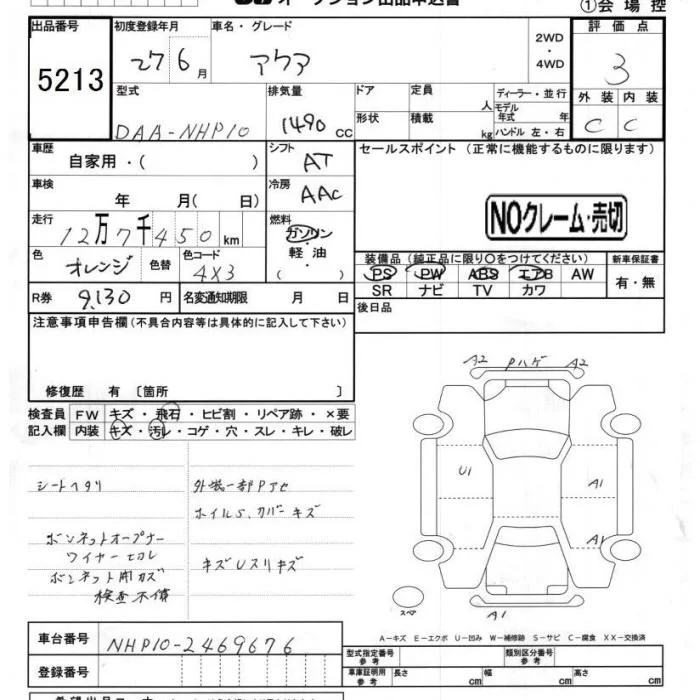 オークション出品申込書
①会場控
出品番号
5213
初度登録年月
27 6 月
車名・グレード
アクア
2WD
・
4WD
評価点
3
外装 内装
C C
型式
DAA-NHP10
排気量
1490 CC
ドア
定員
人
形状
積載
kg
ディーラー・並行
モデル
年式 年
ハンドル 左・右
車歴
自家用・( )
シフト
AT
セールスポイント (正常に機能するものに限ります)
NOクレーム・売切
車検
年 月( 日)
冷房
AAC
走行
12万7千450 km
燃料
ガソリン
軽・油
( )
色
オレンジ
色替
色コード
4X3
装備品 (純正品に限り○をつけてください)
PS PW ABS エアB AW
SR ナビ TV カワ
新車保証書
有・無
R券 9,130 円
名変通知期限 月 日
後日品
注意事項申告欄(不具合内容等は具体的に記入して下さい)
修復歴 有 〔箇所 〕
検査員
記入欄
FW キズ・飛石・ヒビ割・リペア跡・×要
内装 キズ・汚レ・コゲ・穴・スレ・キレ・破レ
シートヘタリ
ボンネットオープナー
ワイヤー
ボンネット開カズ
検査不備
外装一部Pアセ
ホイルS、カバーキズ
キズUスリキズ
A2 Pハゲ A2
U1
A1
A1
A1
スペア
A-キズ E-エクボ U-凹み W-補修跡 S-サビ C-腐食 XX-交換済
車台番号 NHP10-2469676
登録番号
型式指定番号
参考
類別区分番号
参考
車庫証明用
参考
長さ cm 幅 cm 高さ cm